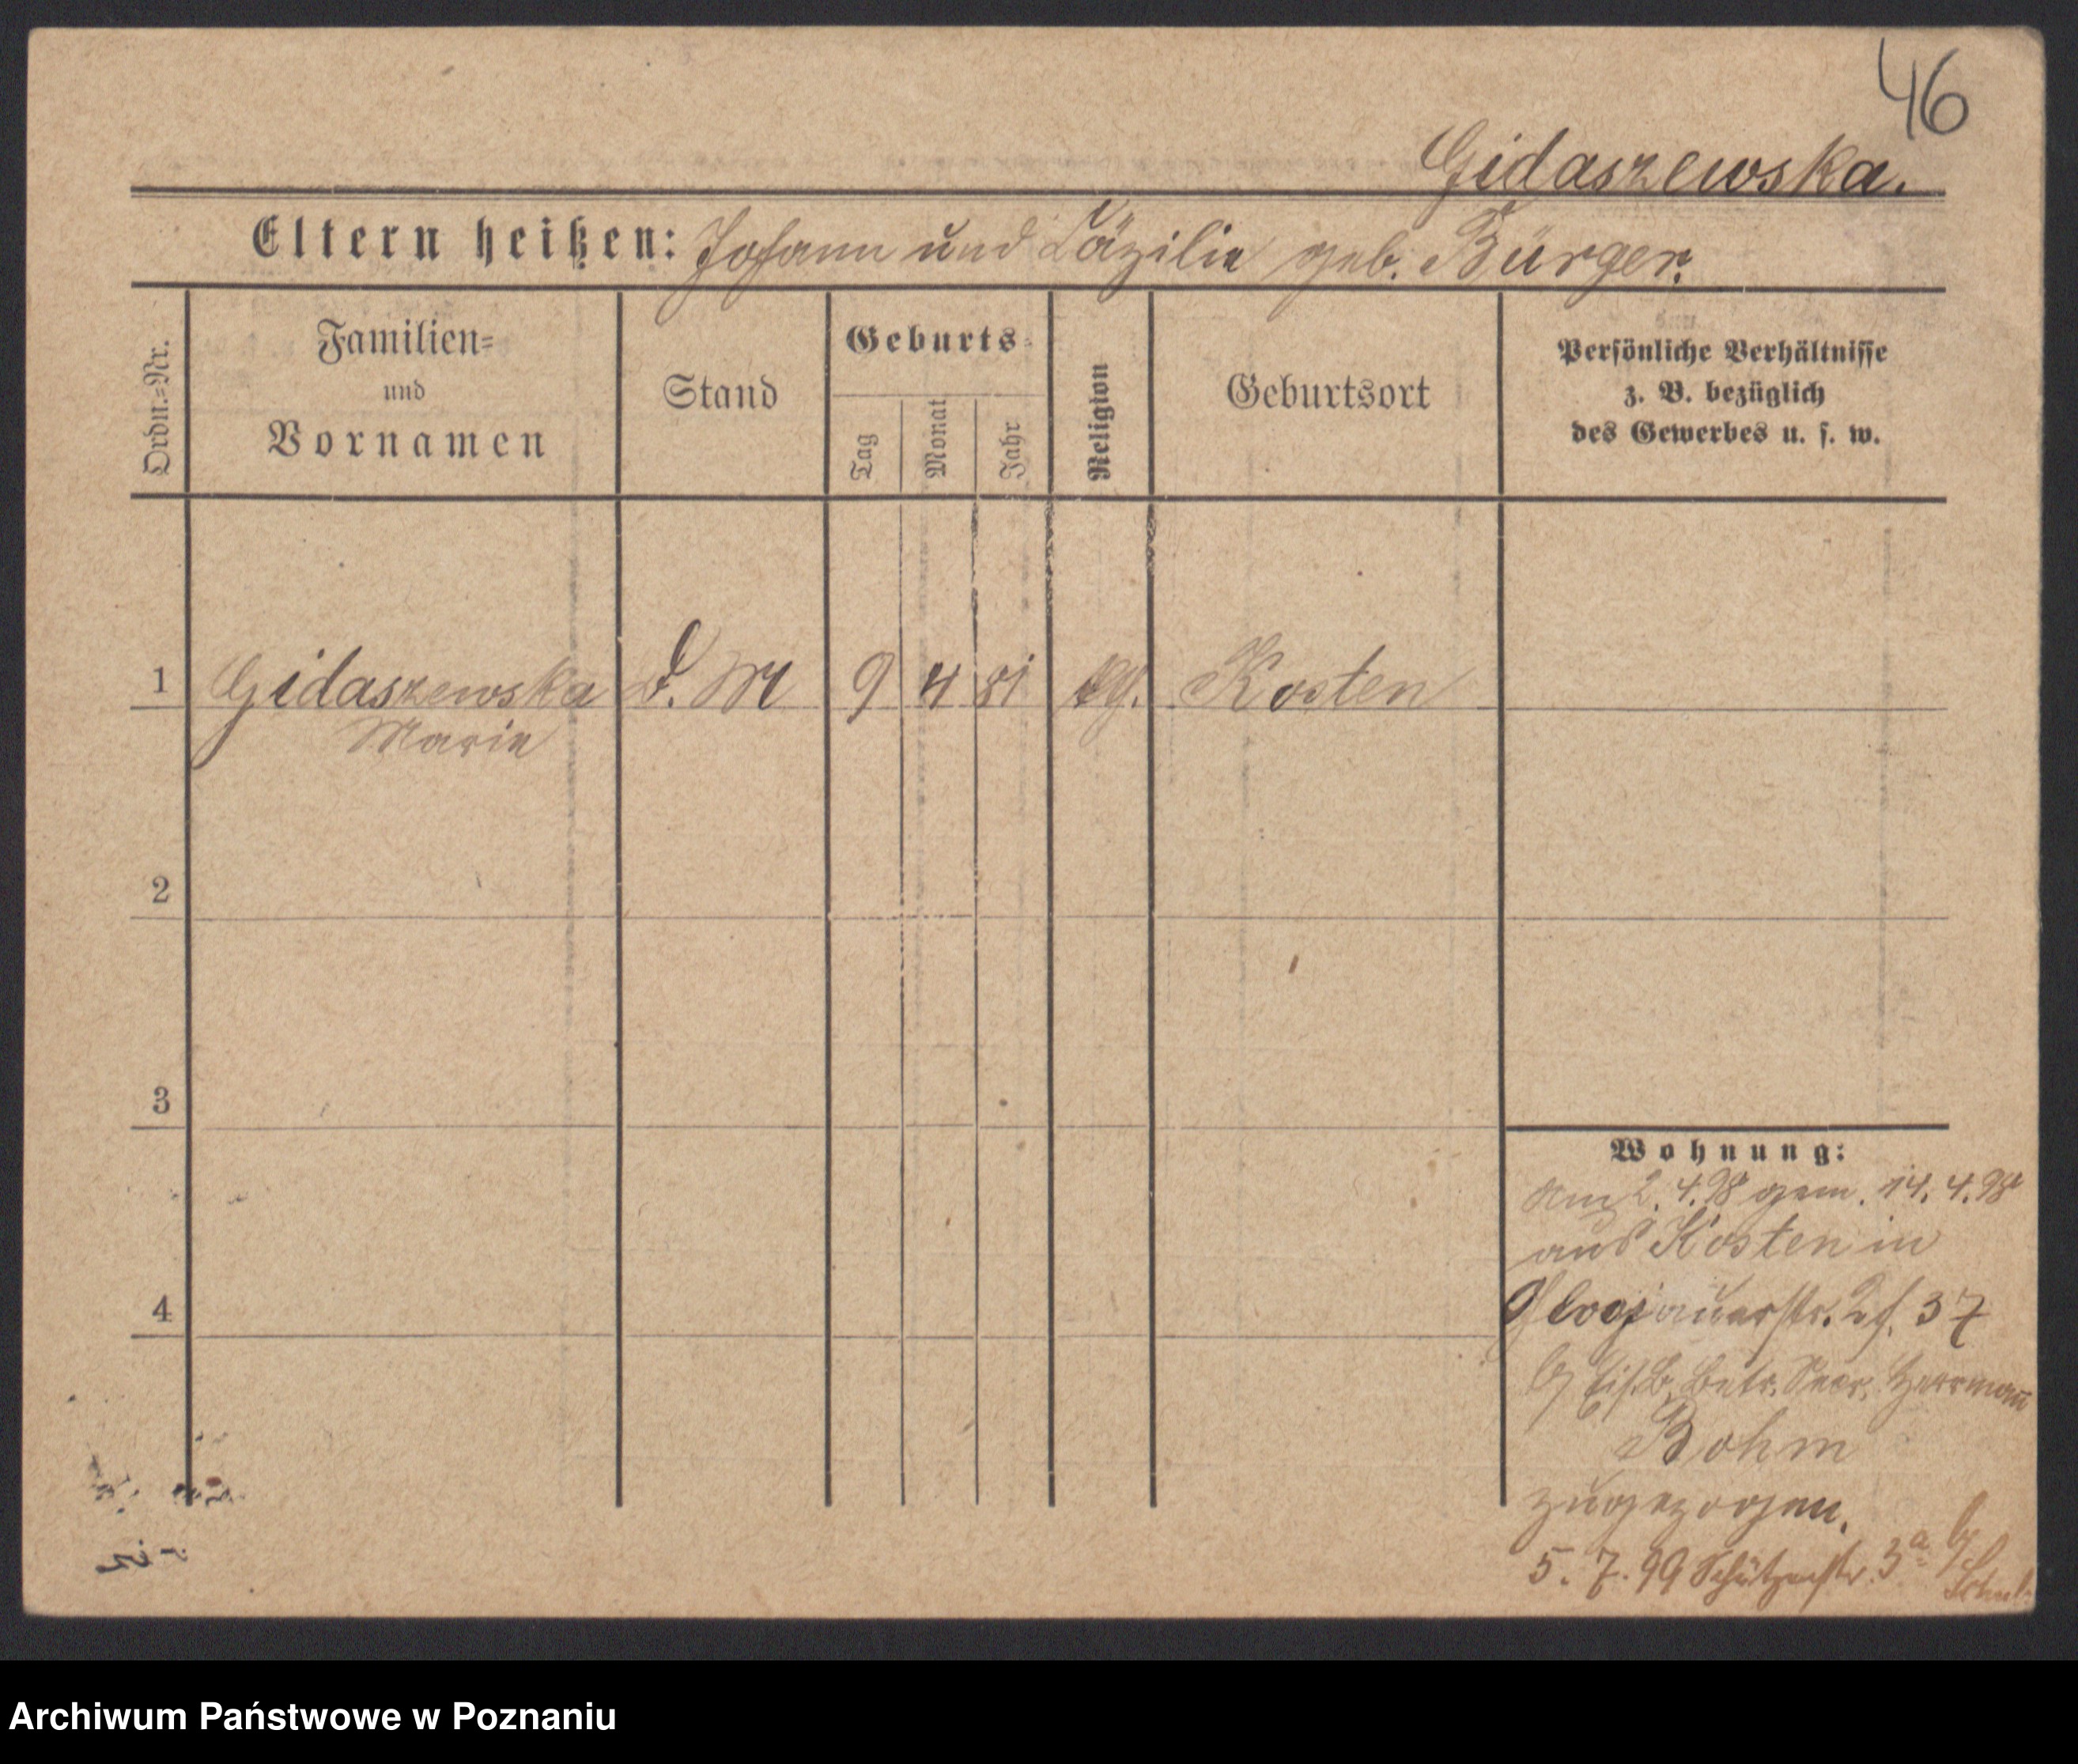 46
Gidaszewska.
Eltern heißen: Johann und Cäzilie geb. Bürger.
Ordn.=Nr.
Familien=
und
Vornamen
Stand
Geburts=
Tag
Monat
Jahr
Religion
Geburtsort
Persönliche Verhältnisse
z. B. bezüglich
des Gewerbes u. s. w.
1 Gidaszewska D. M 9 4 81 kg. Kosten
Marie
2
3
4
Wohnung:
Am 2. 4. 98 gem. 14. 4. 98
aus Kosten in
Glogauerstr. 37
b/ Eis. B. Betr. Secr. Herrmann
Bohm
zugezogen.
5. 7. 99 Schützenstr. 3a b/
Archiwum Państwowe w Poznaniu